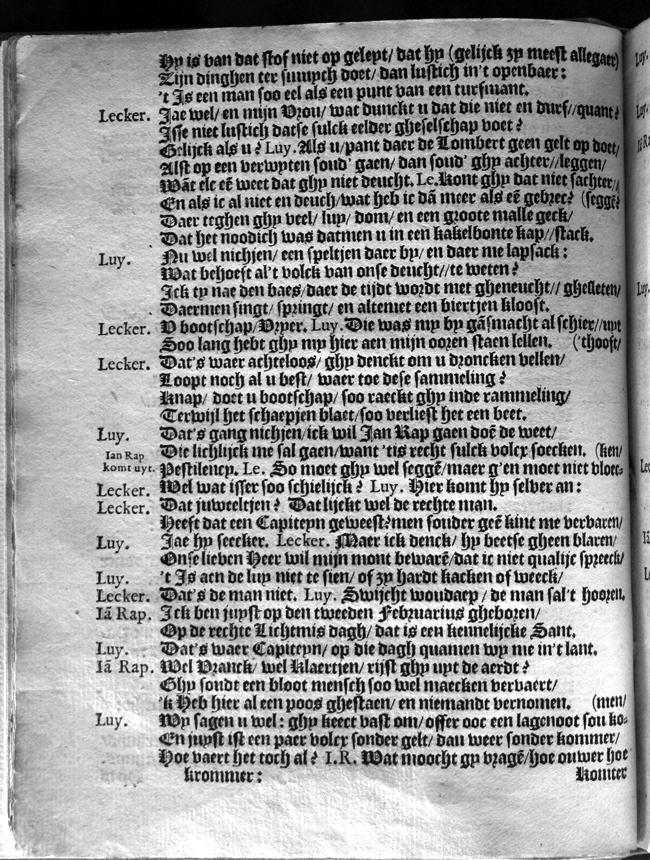 Hy is van dat stof niet op geleyt/ dat hy (gelijck zy meest allegaer)
Zijn dinghen ter sunych doet/ dan lustich in't openbaer:
't Is een man soo eel als een punt van een turfmant.
Lecker. Jae wel/ en mijn Vrou/ wat dunckt u dat die niet en durf//quant?
Isse niet lustich datse sulck eelder gheselschap voet?
Gelijck als u? Luy. Als u/ pant daer de Lombert geen gelt op doet/
Alst op een verwyten soud' gaen/ dan soud' ghy achter//leggen/
Wãt elc eẽ weet dat ghy niet deucht. Le. Kont ghy dat niet sachter//
En als ic al niet en deuch/ wat heb ic dã meer als eẽ gebrec? (seggẽ?
Daer teghen ghy veel/ luy/ dom/ en een groote malle geck/
Dat het noodich was datmen u in een kakelbonte kap//stack.
Luy. Nu wel nichjen/ een speltjen daer by/ en daer me lapsack:
Wat behoeft al't volck van onse deucht//te weten?
Ick ty nae den baes/ daer de tijdt wordt met gheneucht//ghesleten/
Daermen singt/ springt/ en altemet een biertjen kloost.
Lecker. V bootschap/ Vryer. Luy. Die was my by gãsmacht al schier//uyt
Soo lang hebt ghy my hier aen mijn ooren staen lellen. ('thooft/
Lecker. Dat's waer achteloos/ ghy denckt om u droncken vellen/
Loopt noch al u best/ waer toe dese sammeling?
Knap/ doet u bootschap/ soo raeckt ghy inde rammeling/
Terwijl het schaepjen blaet/ soo verliest het een beet.
Luy. Dat's gang nichjen/ ick wil Jan Rap gaen doẽ de weet/
Die lichlijck me sal gaen/ want 'tis recht sulck volcx soecken. (ken/
Ian Rap komt uyt. Pestilency. Le. So moet ghy wel seggẽ/ maer g'en moet niet vloec-
Lecker. Wel wat isser soo schielijck? Luy. Hier komt hy selver an:
Lecker. Dat juweeltjen? Dat lijckt wel de rechte man.
Heeft dat een Capiteyn geweest? men souder geẽ kint me vervaren/
Luy. Jae hy seecker. Lecker. Maer ick denck/ hy beetse gheen blaren/
Onse lieven Heer wil mijn mont bewarẽ/ dat ic niet qualijc spreeck/
Luy. 't Is aen de luy niet te sien/ of zy hardt kacken of weeck/
Lecker. Dat's de man niet. Luy. Swijcht woudaep/ de man sal't hooren.
Iã Rap. Ick ben juyst op den tweeden Februarius gheboren/
Op de rechte Lichtmis dagh/ dat is een kennelijcke Sant.
Luy. Dat's waer Capiteyn/ op die dagh quamen wy me in't lant.
Iã Rap. Wel Vranck/ wel Klaertjen/ rijst ghy uyt de aerdt?
Ghy soudt een bloot mensch soo wel maecken vervaert/
'k Heb hier al een poos ghestaen/ en niemandt vernomen. (men/
Luy. Wy sagen u wel: ghy keect vast om/ offer ooc een lagenoot sou ko-
En juyst ist een paer volcx sonder gelt/ dan weer sonder kommer/
Hoe vaert het toch al? I.R. Wat moocht gy vragẽ/ hoe ouwer hoe
krommer: Komter